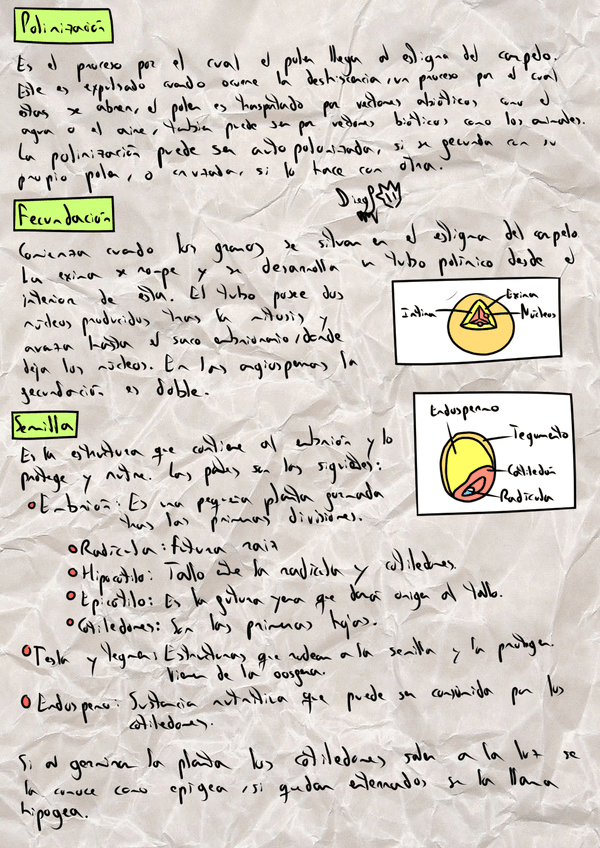 Polinización
Es el proceso por el cual el polen llega al estigma del carpelo.
Este es expulsado cuando ocurre la deshiscencia, un proceso por el cual
estas se abren, el polen es transportado por vectores abióticos como el
agua o el aire, también puede ser por vectores bióticos como los animales.
La polinización puede ser autopolinizada, si se fecunda con su
propio polen, o cruzada, si lo hace con otra.
Diego
Fecundación
Comienza cuando los granos se situan en el estigma del carpelo
La exina se rompe y se desarrolla un tubo polínico desde el
interior de esta. El tubo posee dos
núcleos producidos tras la mitosis y
avanza hasta el saco embrionario, donde
deja los núcleos. En las angiospermas la
fecundación es doble.
Intina
Exina
Núcleos
Semilla
Es la estructura que contiene al embrión y lo
protege y nutre. Las partes son las siguientes:
Embrión: Es una pequeña planta formada
tras las primeras divisiones.
Endospermo
Tegumento
Cotiledón
Radícula
Radícula: futura raiz
Hipocotilo: Tallo entre la radícula y cotiledones.
Epicotilo: Es la futura yema que dará origen al tallo.
Cotiledones: Son las primeras hojas.
Testa y tegmen: Estructuras que rodean a la semilla y la protegen.
Vienen de la oosfera.
Endospermo: Sustancia nutritiva que puede ser consumida por los
cotiledones.
Si al germinar la planta los cotiledones salen a la luz se
la conoce como epígea, si quedan enterrados se la llama
hipogea.